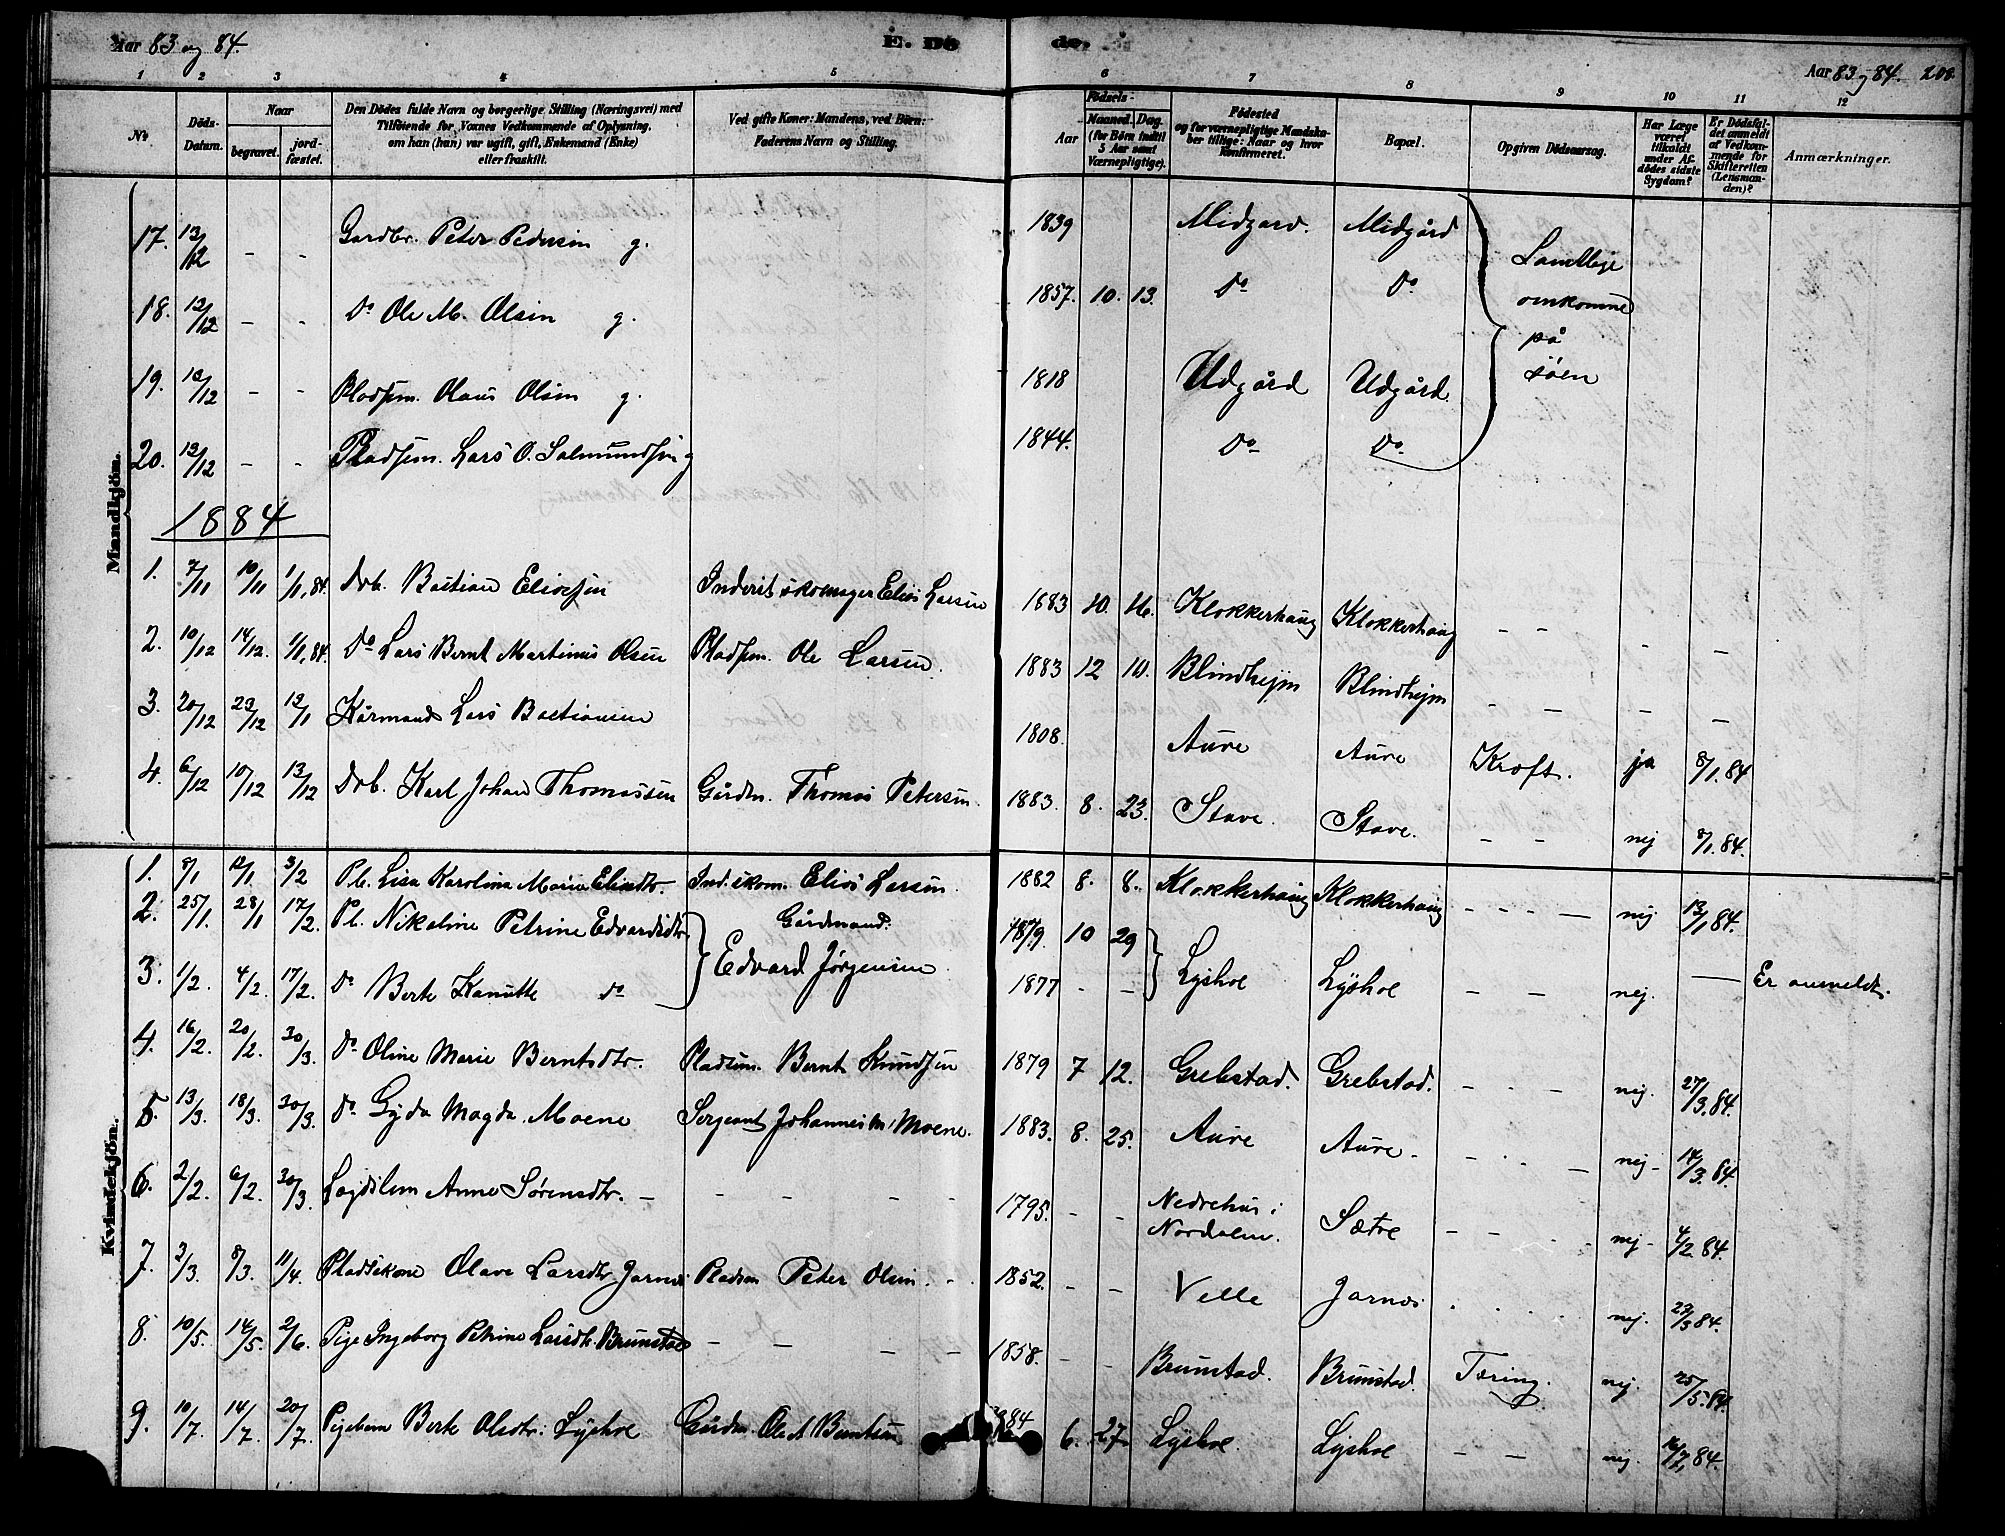 Aar 83 og 84.
E. Dö
de.
Aar 83 og 84. 208.
1 2 3 4 5 6 7 8 9 10 11 12
No
Döds-Datum.
Naar
begravet.
jord-fæstet.
Den Dödes fulde Navn og borgerlige Stilling (Næringsvei) med
Tilföiende for Voxnes Vedkommende af Oplysning,
om han (hun) var ugift, gift, Enkemand (Enke)
eller fraskilt.
Ved gifte Koner: Mandens, ved Börn:
Faderens Navn og Stilling.
Födsels-
Aar
Maaned.
Dag
(for Börn indtil
5 Aar samt
Værnepligtige).
Födested
og for værnepligtige Mandska-
ber tillige: Naar og hvor
Konfirmeret.
Bopæl.
Opgiven Dödsaarsag.
Har Læge
været
tilkaldt
under Af-
dødes sidste
Sygdom?
Er Dödsfal-
det anmeldt
af Vedkom-
mende for
Skifteretten
(Lensman-
den)?
Anmærkninger.
Mandkjön.
17. 13/12 - - Gardbr. Peter Pedersen g. 1839 Midgard. Midgård
Samtlige
omkomne
på
søen
18. 13/12 - - Do Ole M. Olsen g. 1857. 10. 13. Do Do
19. 13/12 - - Pladsm. Olaus Olsen g. 1818 Udgård Udgård
20. 13/12 - - Pladsem. Lars O. Salmundsen g 1844. Do Do
1884
1. 7/11 10/11 1/1,84. Drb. Bastian Eliassen Inderst skomager Elias Larsen 1883 10. 16. Klokkerhaug Klokkerhaug - - - -
2. 10/12 14/12. 1/1,84. Do Lars Bernt Martinus Olsen Pladsm. Ole Larsen. 1883 12 10. Blindhejm Blindhejm - - - -
3. 20/12 23/12 12/1 Kårmand Lars Bastiansen 1808. Aure Aure Kræft. ja 8/1.84
4. 6/12 10/12 13/12 Drb. Karl Johan Thomassen Gårdm. Thomas Petersen. 1883. 8. 23. Stave. Stave. - - nej 8/1.84.
Kvindekjön.
1. 8/1 12/1 3/2 Pb. Lisa Karolina Marie Eliasdtr. Ind. skom. Elias Larsen. 1882 8. 8. Klokkerhaug Klokkerhaug - - - nej 13/1 84.
2. 25/1. 28/1 17/2. Pb. Nikoline Petrine Edvardsdtr. Gårdmand. 1879. 10 29
3. 1/2. 4/2. 17/2. Do Berte Kanutte do Edvard Jørgensen 1877 - - Lyshoe Lyshoe - - nej. — Er anmeldt.
4. 16/2. 20/2. 30/3. Do Oline Marie Berntsdtr. Pladsm. Bernt Knudsen 1879 7 12. Grebstad. Grebstad. - - - nej. 27/3.84.
5. 13/3. 18/3. 30/3. Do Gyda Magda Moene Sergeant Johannes M. Moene. 1883. 8. 25. Aure Aure. - - - nej - 14/3.84.
6. 2/2. 6/2. 30/3. Lægdslem Anne Sørensdtr. - - - - - 1795. - - Nedrehus i
Nordalen. Sætre - - - nej - 4/2 84.
7. 3/3. 8/3. 11/4. Pladskone Olave Larsdtr Jarnes Pladsm Peter Olsen. - 1852. - - Velle Jarnes. - - - nej. 23/3 84.
8. 10/5. 14/5. 2/6. Pige Ingeborg Petrine Larsdtr Brunstad - - - - 1858. - - Brunstad. Brunstad. Tæring. nej. 25/5.84.
9. 10/7. 14/7. 20/7. Pigebarn Berte Olsdtr: Lyshoe Gårdm. Ole A Berntsen 1884 6. 27. Lyshoe. Lyshoe - - nej. 16/7,84.